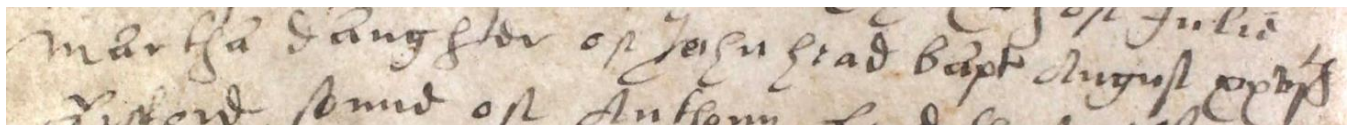 of Julie
Martha daughter of John head bapt August xxvjth
sonne of Anthony